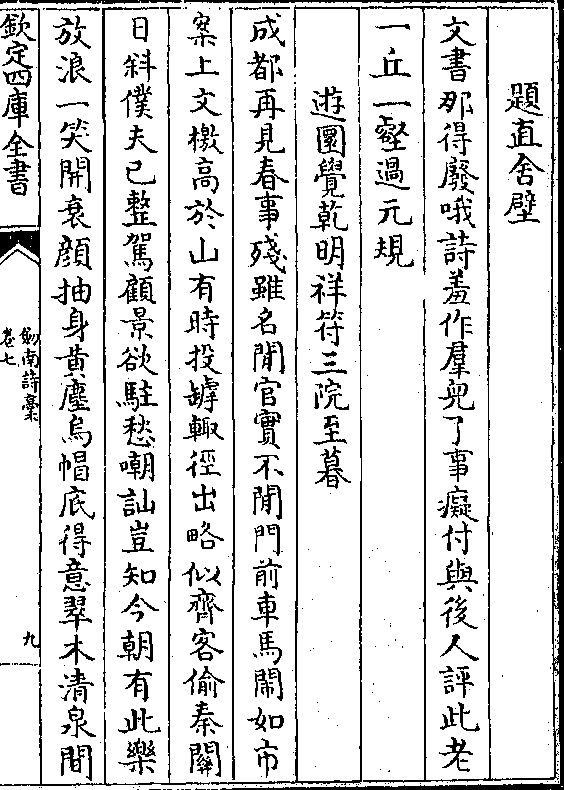 題直舍壁
文書那得廢哦詩羞作羣兒了事癡付與後人評此老
一丘一壑過元規
遊圜覺乾明祥符三院至暮
成都再見春事殘雖名閒官實不閒門前車馬鬧如市
案上文檄高於山有時投罅輙徑出略似齊客偷秦關
日斜僕夫已整駕顧景欲駐愁嘲訕豈知今朝有此樂
放浪一笑開衰顔抽身黄塵烏帽底得意翠木清泉間
欽定四庫全書
劒南詩稾
卷七
九